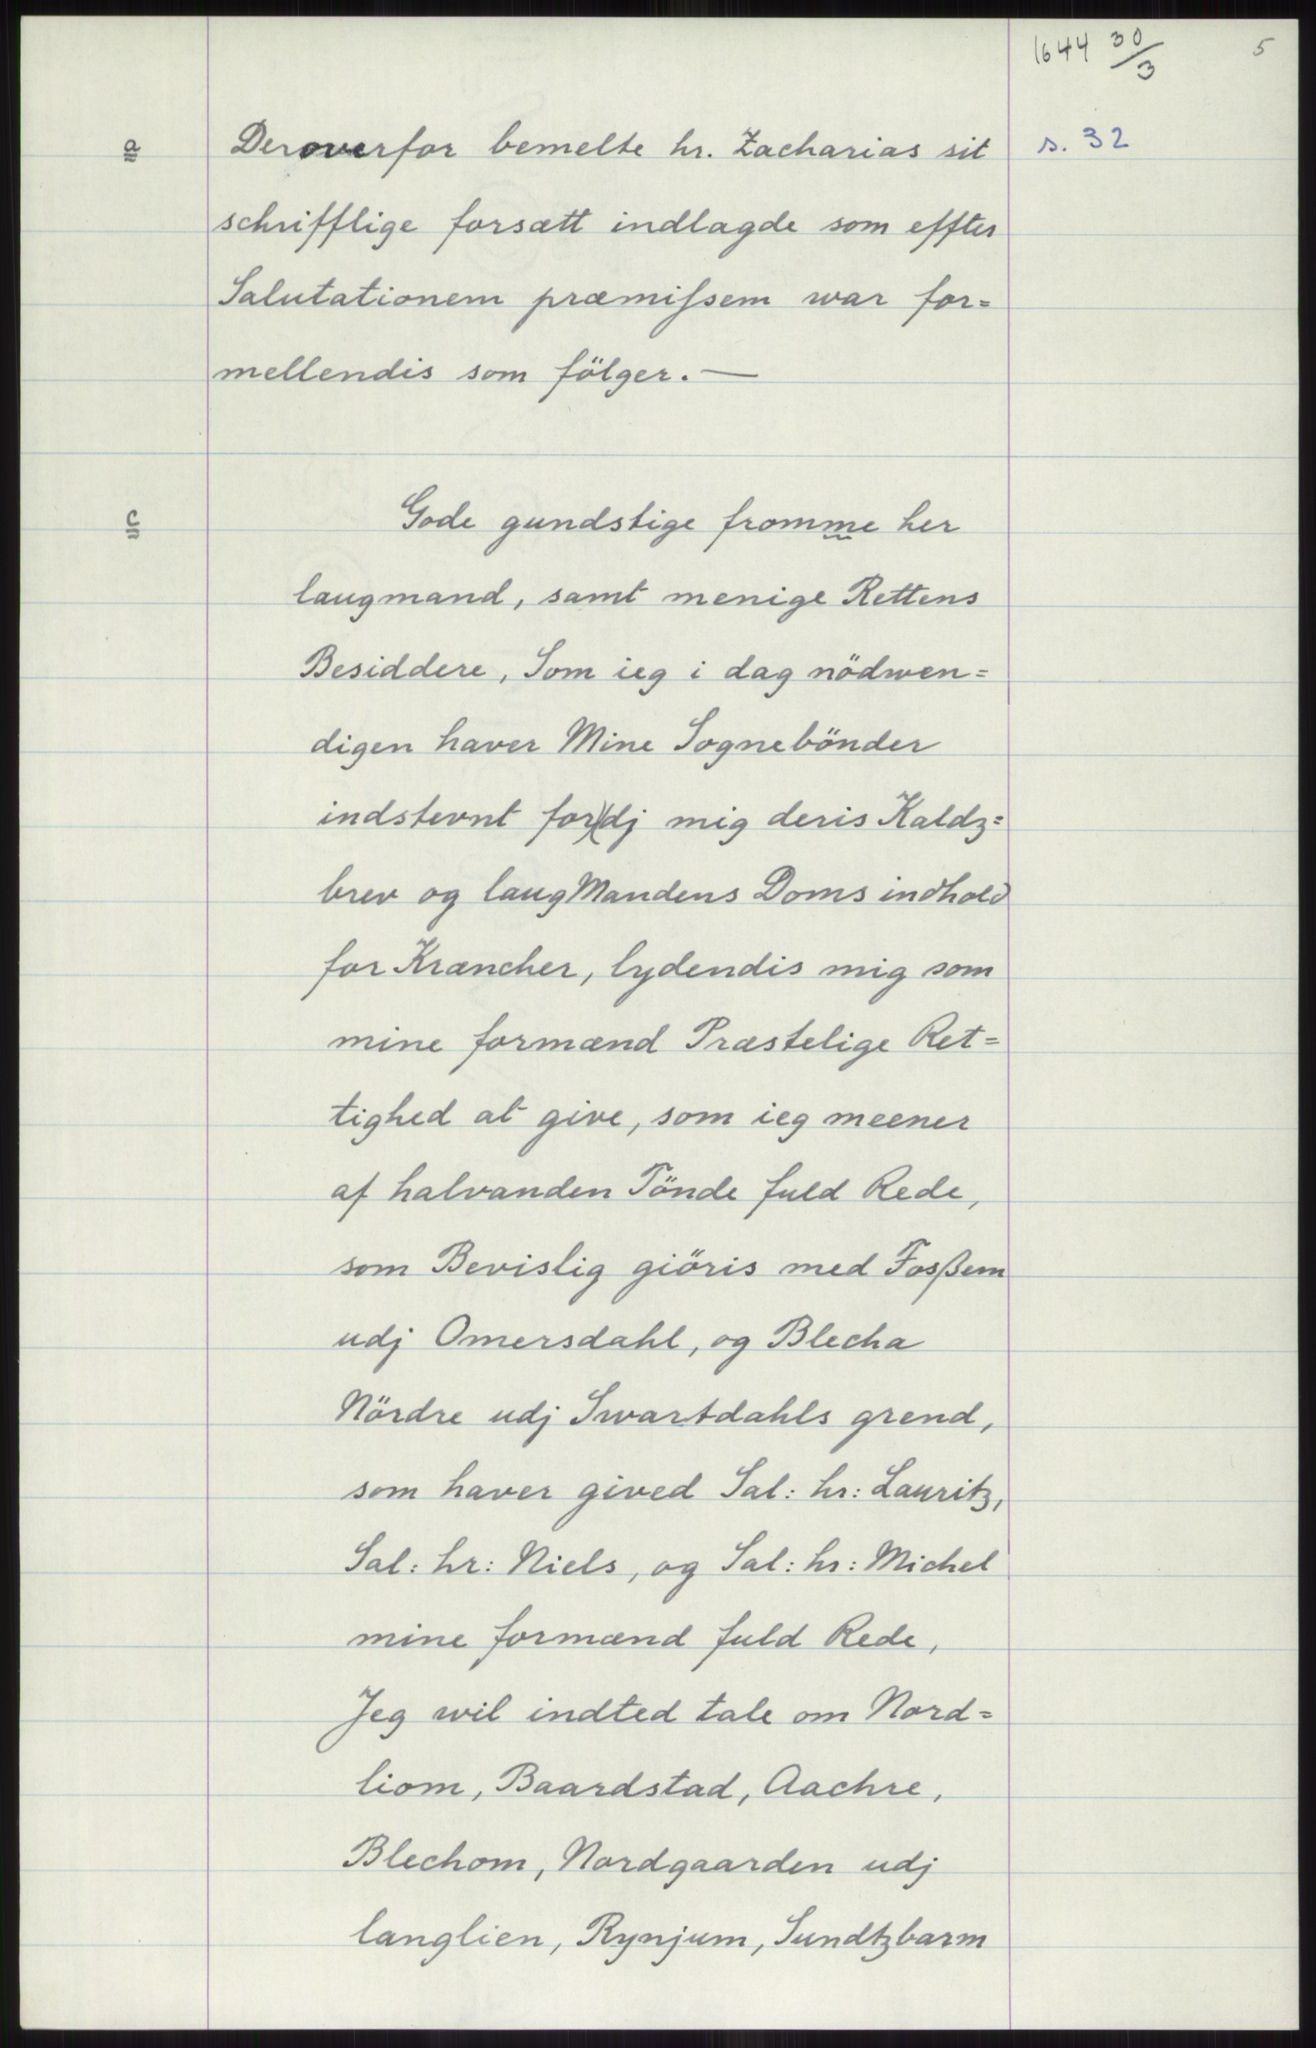 1644 30/3
5
a
Deroverfor bemelte hr. Zacharias sit
s. 32
schrifftlige forsætt indlagde som effter
Salutationem præmiſsem war for=
mellendis som fölger. —
c
Gode gundstige fromme her
laugmand, samt menige Rettens
Besiddere, Som ieg i dag nödwen=
digen haver Mine Sognebönder
indstevnt for)(dj mig deris Kaldz=
brev og laugMandens Doms indhold
for Kræncher, lydendis mig som
mine formænd Præstelige Ret=
tighed at give, som ieg meener
af halvanden Tönde fuld Rede,
som Bevislig giöris med Fosßem
udj Omersdahl, og Blecha
Nördre udj Swartdahls grend,
som haver gived Sal: hr: Lauritz,
Sal: hr: Niels, og Sal: hr: Michel
mine formænd fuld Rede,
Jeg wil indted tale om Nord=
liom, Baardstad, Aachre,
Blechom, Nordgaarden udj
langlien, Rynjum, Sundtzbarm